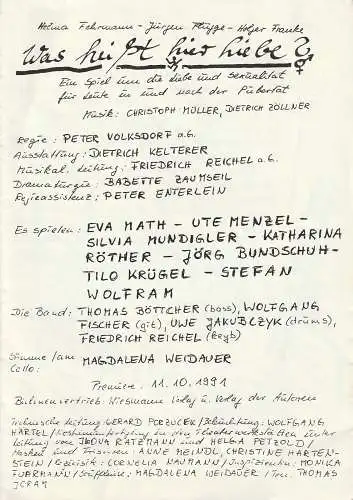 Helma Fehrmann - Jürgen Flügge - Holger Franke
Was heißt hier Liebe?
Ein Spiel um die Liebe und Sexualität
für Leute in und nach der Pubertät
Musik: CHRISTOPH MÜLLER, DIETRICH ZÖLLNER
Regie: PETER VOLKSDORF a.G.
Ausstattung: DIETRICH KELTERER
Musikal. Leitung: FRIEDRICH REICHEL a.G.
Dramaturgie: BABETTE ZAUMSEIL
Regieassistenz: PETER ENTERLEIN
Es spielen: EVA MATH - UTE MENZEL -
SILVIA MUNDIGLER - KATHARINA
RÖTHER - JÖRG BUNDSCHUH -
TILO KRÜGEL - STEFAN
WOLFRAM
Die Band: THOMAS BÖTTCHER (bass), WOLFGANG
FISCHER (git), UWE JAKUBCZYK (drums),
FRIEDRICH REICHEL (keyb)
Stimme/am MAGDALENA WEIDAUER
Cello:
Premiere: 11.10.1991
Bühnenvertrieb: Verlag der Autoren
Technische Leitung: GERARD PORZUCEK / Beleuchtung: WOLFGANG
HÄRTEL / Kostümanfertigung in den Theaterwerkstätten unter
Leitung von ILONA RATZMANN und HELGA PETZOLD /
Maskes und Frisuren: ANNE MEINDL, CHRISTINE HARTEN-
STEIN / Requisite: CORNELIA NAUMANN / Inspizientin: MONIKA
FUHRMANN / Souffleuse: MAGDALENA WEIDAUER / Ton: THOMAS